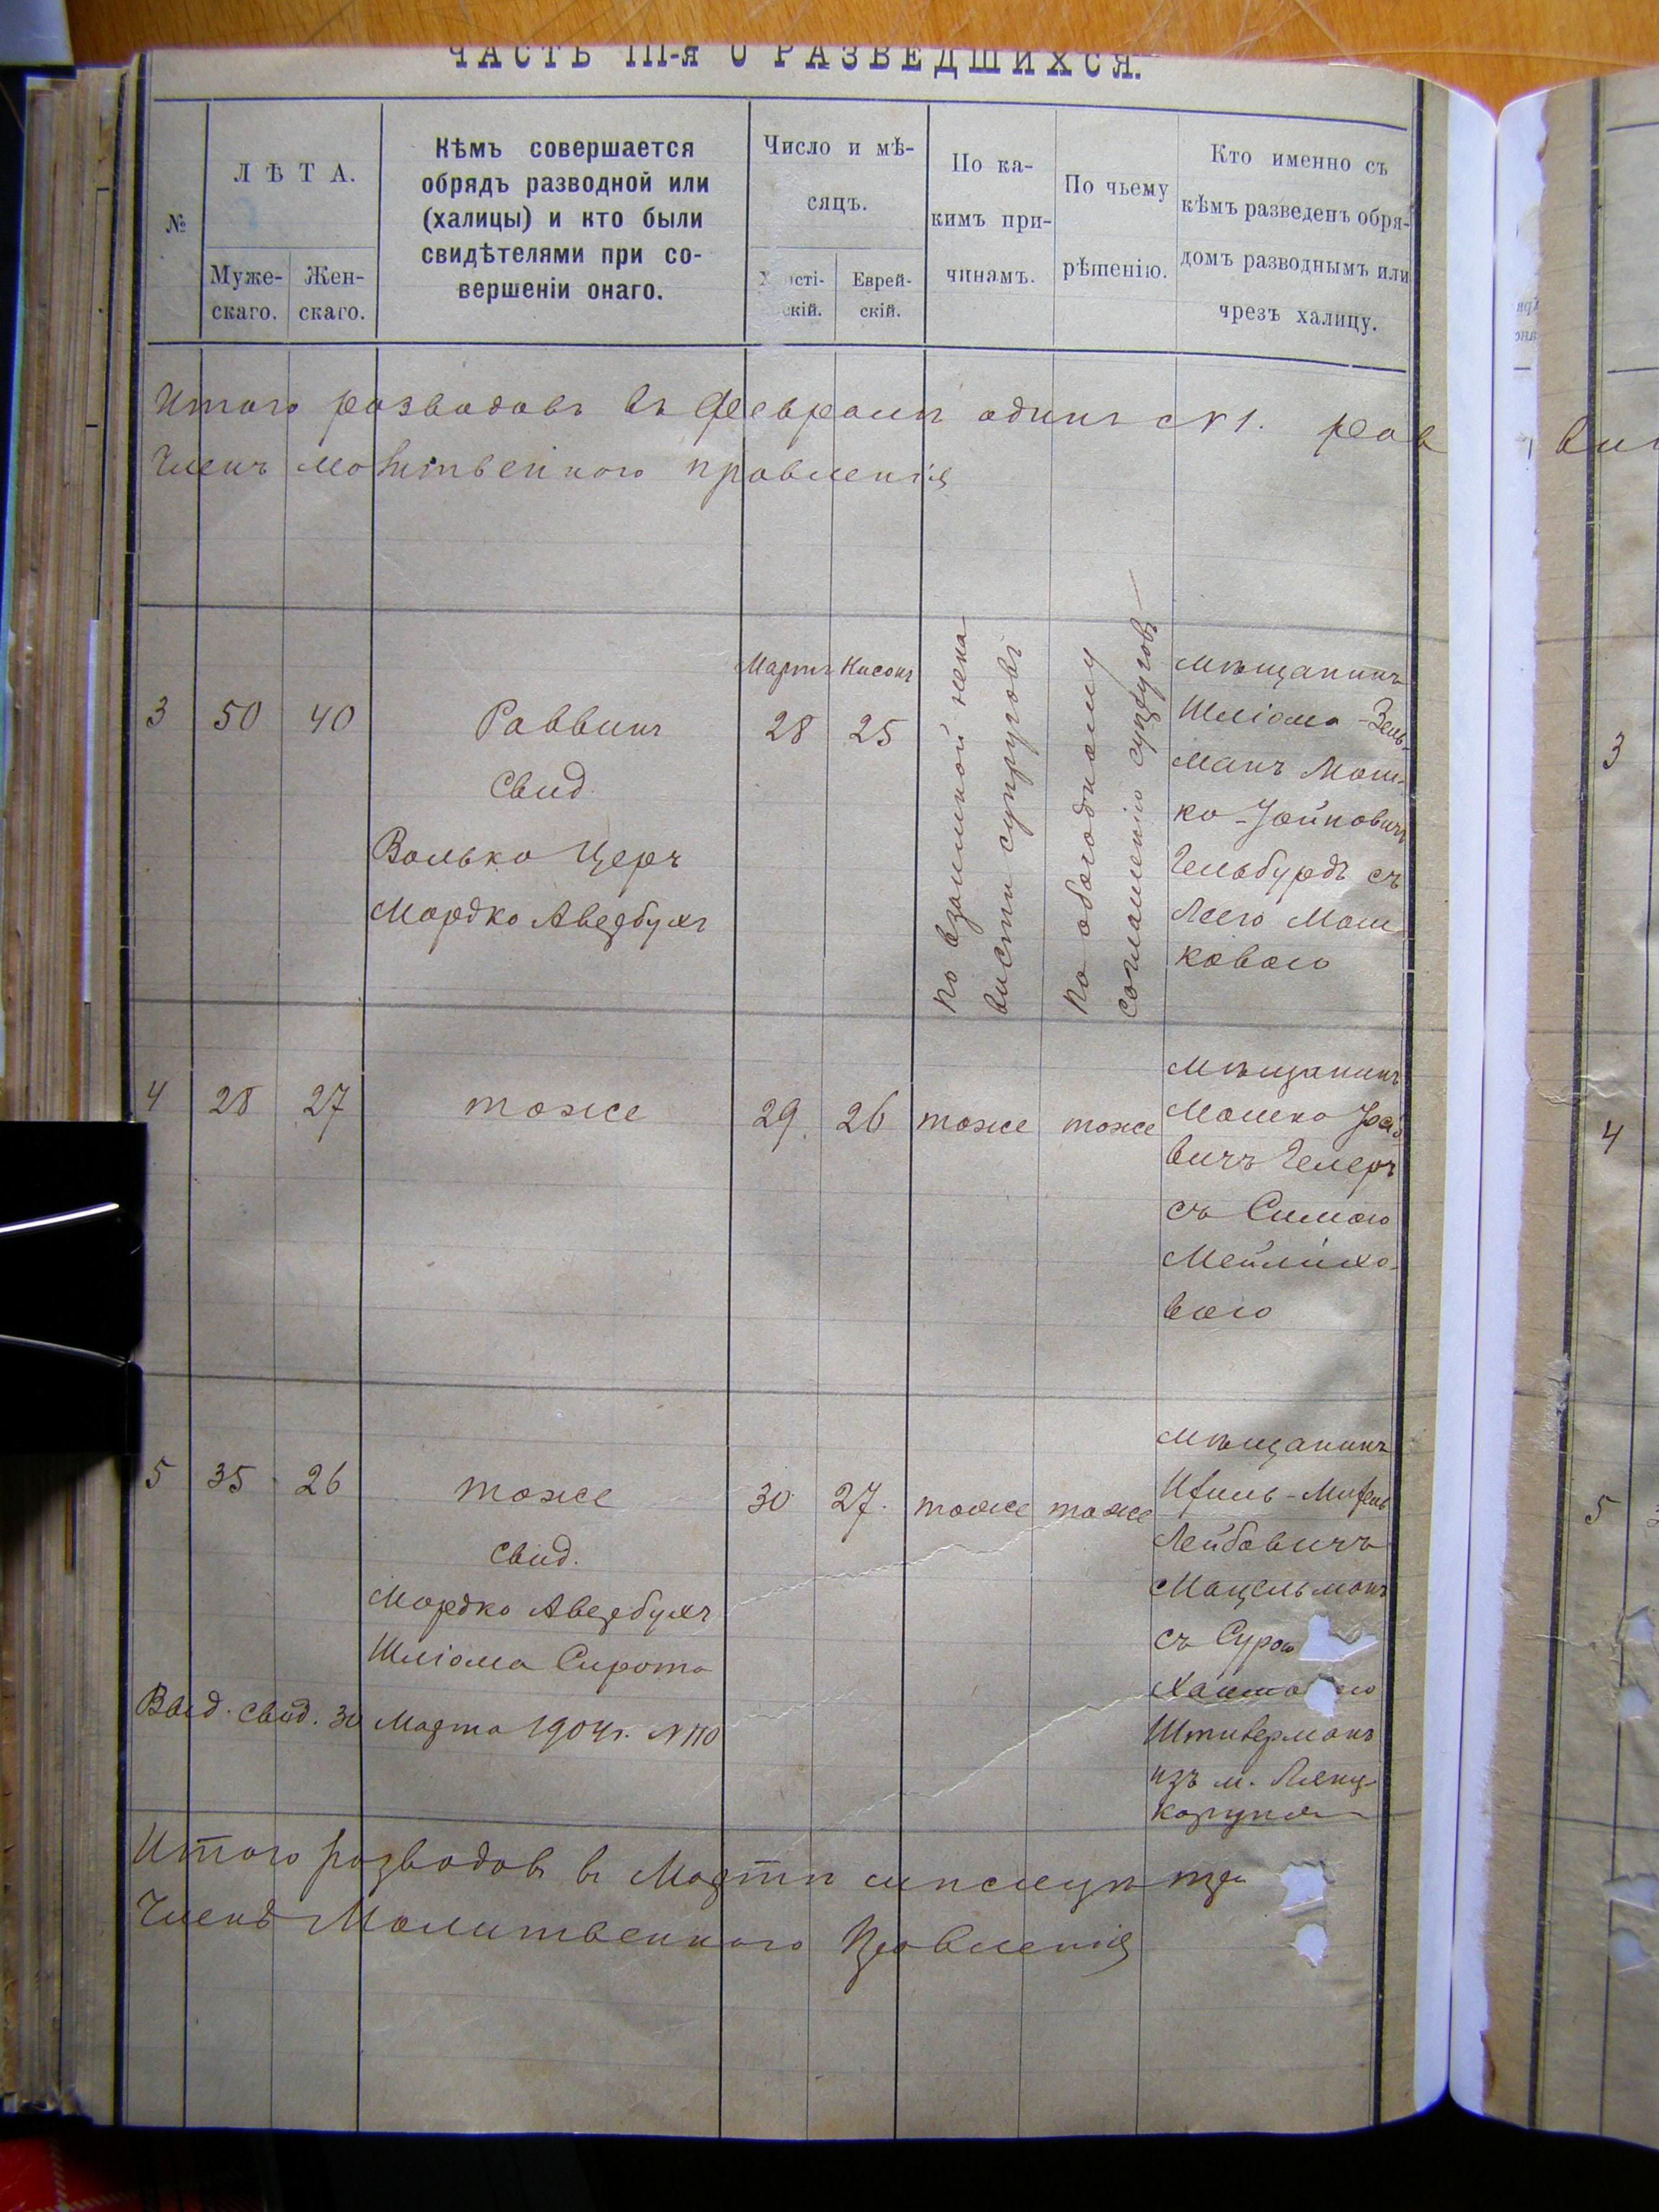 ЧАСТЬ III-я О РАЗВЕДШИХСЯ.
№
ЛѢТА.
Муже-
скаго.
Жен-
скаго.
Кѣмъ совершается
обрядъ разводной или
(халицы) и кто были
свидѣтелями при со-
вершеніи онаго.
Число и мѣ-
сяцъ.
Х исті-
скій.
Еврей-
скій.
По ка-
кимъ при-
чинамъ.
По чьему
рѣшенію.
Кто именно съ
кѣмъ разведенъ обря-
домъ разводнымъ или
чрезъ халицу.
Итого разводовъ въ Февралѣ одинъ №1.
Членъ молитвеннаго правленія
3 50 40
Раввинъ
Свид.
Волько Церъ
Мордко Авербухъ
Мартъ Нисонъ
28 25
по взаимной нена
висти супруговъ
по обоюдному
соглашенію супруговъ
мѣщанинъ
Шліома-Зель-
манъ Мош-
ко-Іойновичъ
Гельбурдъ съ
Леею Мош
ковою
3
4 28 27
тоже
29 26 тоже тоже
мѣщанинъ
Мошко
вичъ Гелеръ
съ Симою
Мейлихо-
вою
4
5 35 26
тоже
свид.
Мордко Авербухъ
Шліома Сирота
30 27. тоже тоже
мѣщанинъ
Лейбовичъ
Мацельманъ
съ Сурою
Штиверманъ
изъ м.
5
Выд. свид. 30 Марта 1904г. №110
Итого разводовъ въ Мартѣ мѣсяцѣ три
Членъ Молитвеннаго Правленія